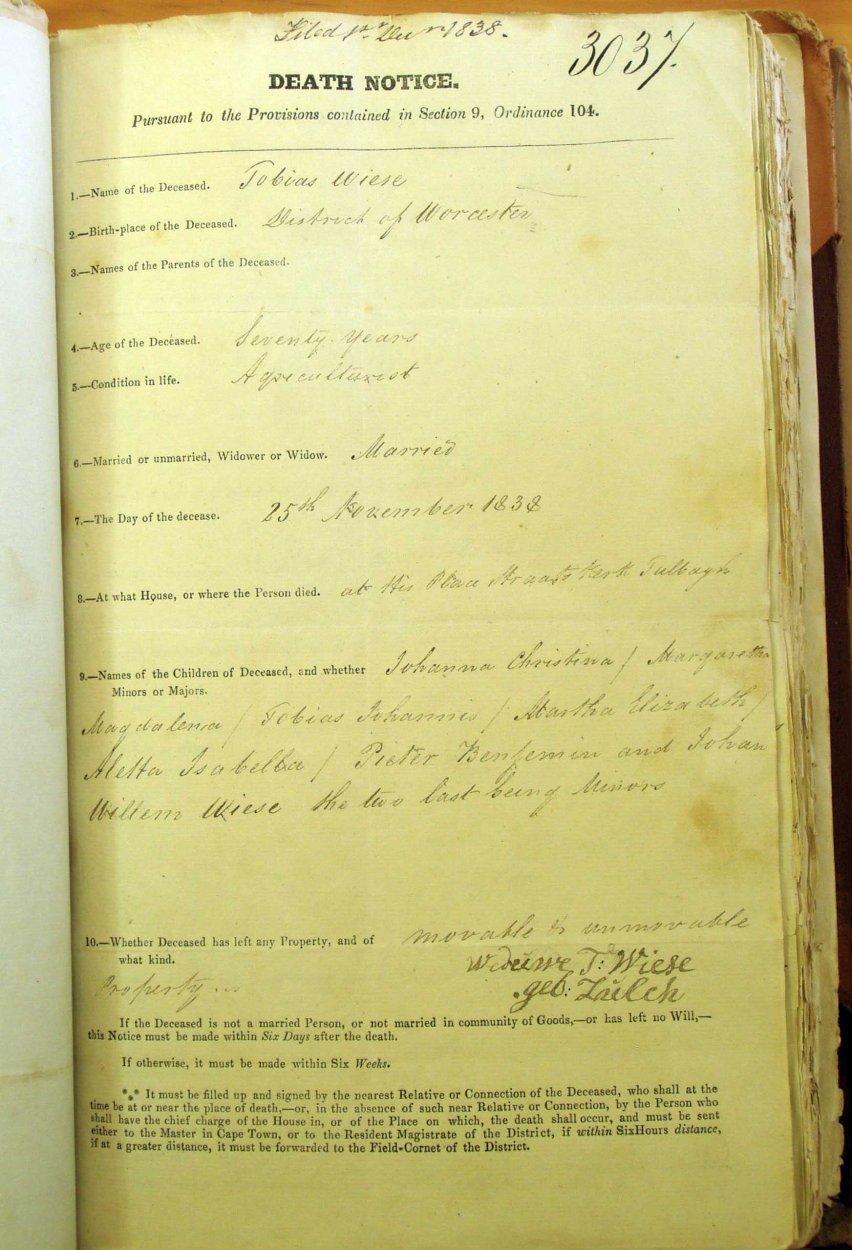 Filed 1838.
3037.
DEATH NOTICE.
Pursuant to the Provisions contained in Section 9, Ordinance 104.
1.—Name of the Deceased. Tobias Wiese
2.—Birth-place of the Deceased. District of Worcester
3.—Names of the Parents of the Deceased.
4.—Age of the Deceased. Seventy years
5.—Condition in life. Agriculturist
6.—Married or unmarried, Widower or Widow. Married
7.—The Day of the decease. 25th November 1838
8.—At what House, or where the Person died. at His Place Straats Kerk Tulbagh
9.—Names of the Children of Deceased, and whether Johanna Christina / Margaretha
Minors or Majors.
Magdalena / Tobias Johannis / Martha Elizabeth /
Aletta Isabella / Pieter Benjemin and Johan
Willem Wiese the two last being Minors
10.—Whether Deceased has left any Property, and of movable & unmovable
what kind. Weduwe T: Wiese
Property geb: Zülch
If the Deceased is not a married Person, or not married in community of Goods,—or has left no Will,—
this Notice must be made within Six Days after the death.
If otherwise, it must be made within Six Weeks.
⁂ It must be filled up and signed by the nearest Relative or Connection of the Deceased, who shall at the
time be at or near the place of death,—or, in the absence of such near Relative or Connection, by the Person who
shall have the chief charge of the House in, or of the Place on which, the death shall occur, and must be sent
either to the Master in Cape Town, or to the Resident Magistrate of the District, if within SixHours distance,
if at a greater distance, it must be forwarded to the Field-Cornet of the District.